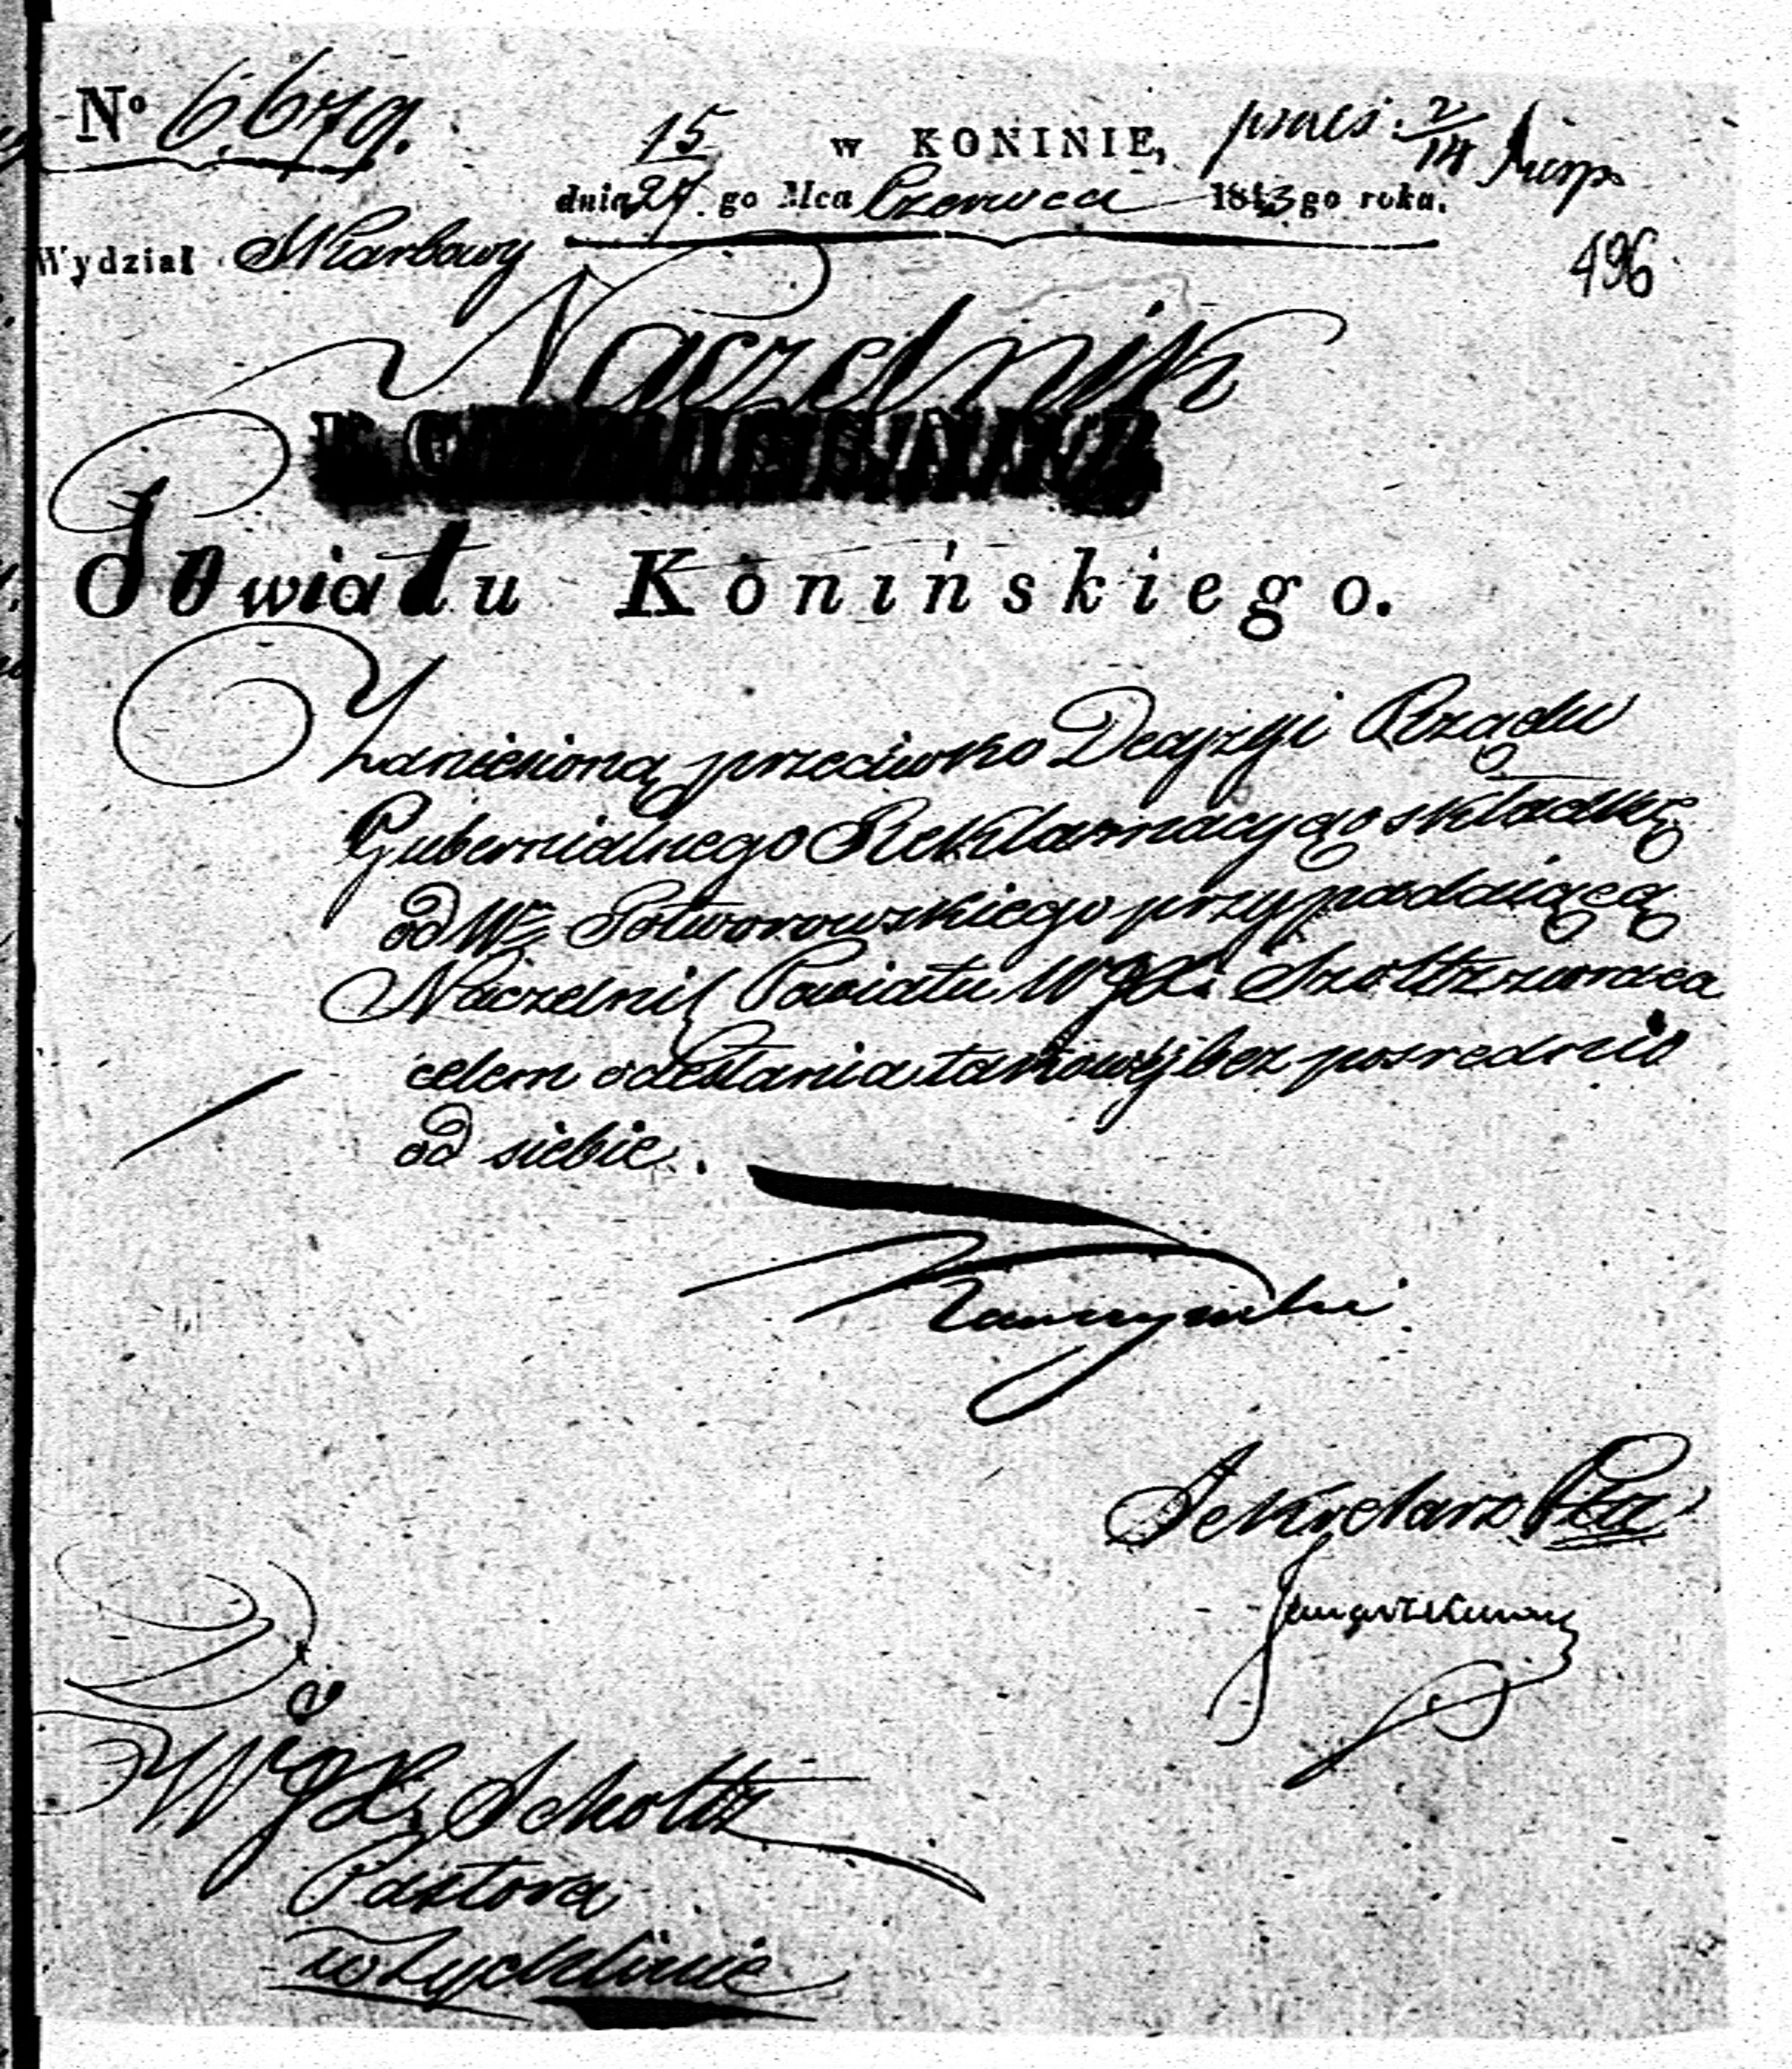 No 6,679.
15 w KONINIE, praes. 2/14 Sierp.
dnia 27. go Mca Czerwca 1843 go roku.
Wydział Skarbowy
496
Naczelnik
Powiatu Konińskiego.
Zaniesioną przeciwko Decyzyi Rządu
Gubernialnego Reklamacyą o składkę
od W. Potworowskiego przypadaiącą
Naczelnik Powiatu WJX. Szoltz zwraca
celem odesłania takowéj bez pośrednio
od siebie.
Sekretarz Ptu
Do
WJX. Scholtz
Pastora
w Żychlinie